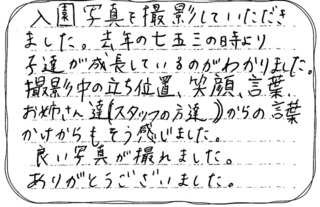 入園写真を撮影していただき
ました。去年の七五三の時より
子達が成長しているのがわかりました。
撮影中の立ち位置、笑顔、言葉、
お姉さん達(スタッフの方達)からの言葉
かけからもそう感じました。
良い写真が撮れました。
ありがとうございました。